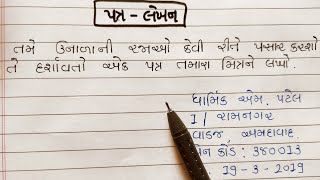 પત્ર - લેખન
તમે ઉનાળાની રજાઓ કેવી રીતે પસાર કરશો
તે દર્શાવતો એક પત્ર તમારા મિત્રને લખો.
ધાર્મિક એમ. પટેલ
1/ રામનગર
વાડજ અમદાવાદ
પીન કોડ: 380013
19-3-2019